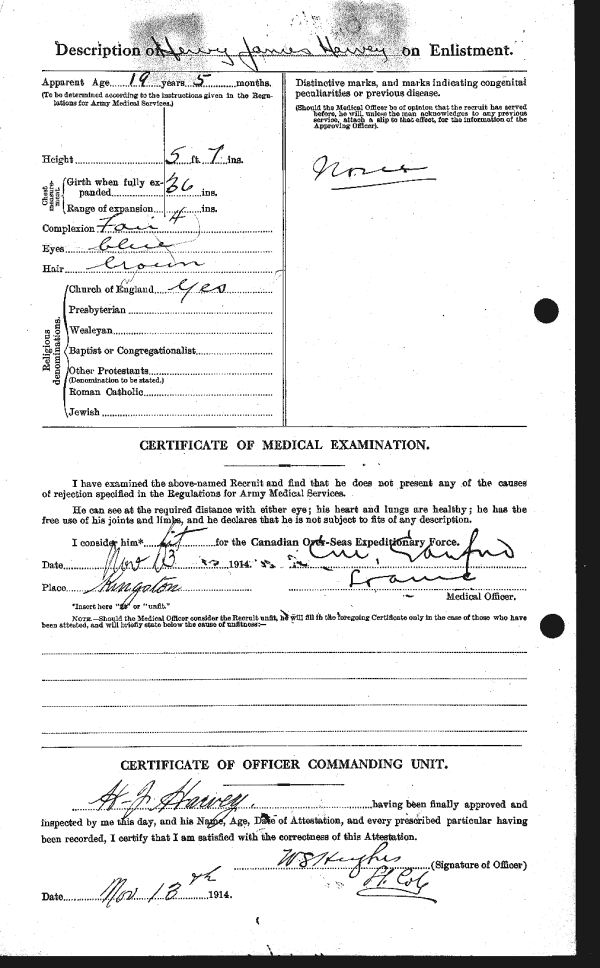 Description of Henry James Harvey on Enlistment.
Apparent Age 19 years 5 months.
(To be determined according to the instructions given in the Regulations for Army Medical Services.)
Height 5 ft. 7 ins.
Chest measurement
Girth when fully expanded 36 ins.
Range of expansion 4 ins.
Complexion Fair
Eyes blue
Hair brown
Religious denominations.
Church of England Yes
Presbyterian
Wesleyan
Baptist or Congregationalist
Other Protestants
(Denomination to be stated.)
Roman Catholic
Jewish
Distinctive marks, and marks indicating congenital
peculiarities or previous disease.
(Should the Medical Officer be of opinion that the recruit has served
before, he will, unless the man acknowledges to any previous
service, attach a slip to that effect, for the information of the
Approving Officer).
CERTIFICATE OF MEDICAL EXAMINATION.
I have examined the above-named Recruit and find that he does not present any of the causes
of rejection specified in the Regulations for Army Medical Services.
He can see at the required distance with either eye; his heart and lungs are healthy; he has the
free use of his joints and limbs, and he declares that he is not subject to fits of any description.
I consider him* fit for the Canadian Over-Seas Expeditionary Force.
Date Nov 13 1914.
Place Kingston
Medical Officer.
*Insert here "fit" or "unfit."
NOTE.—Should the Medical Officer consider the Recruit unfit, he will fill in the foregoing Certificate only in the case of those who have
been attested, and will briefly state below the cause of unfitness:—
CERTIFICATE OF OFFICER COMMANDING UNIT.
H. J. Harvey. having been finally approved and
inspected by me this day, and his Name, Age, Date of Attestation, and every prescribed particular having
been recorded, I certify that I am satisfied with the correctness of this Attestation.
W S Hughes (Signature of Officer)
Lt. Col.
Date Nov 13th 1914.